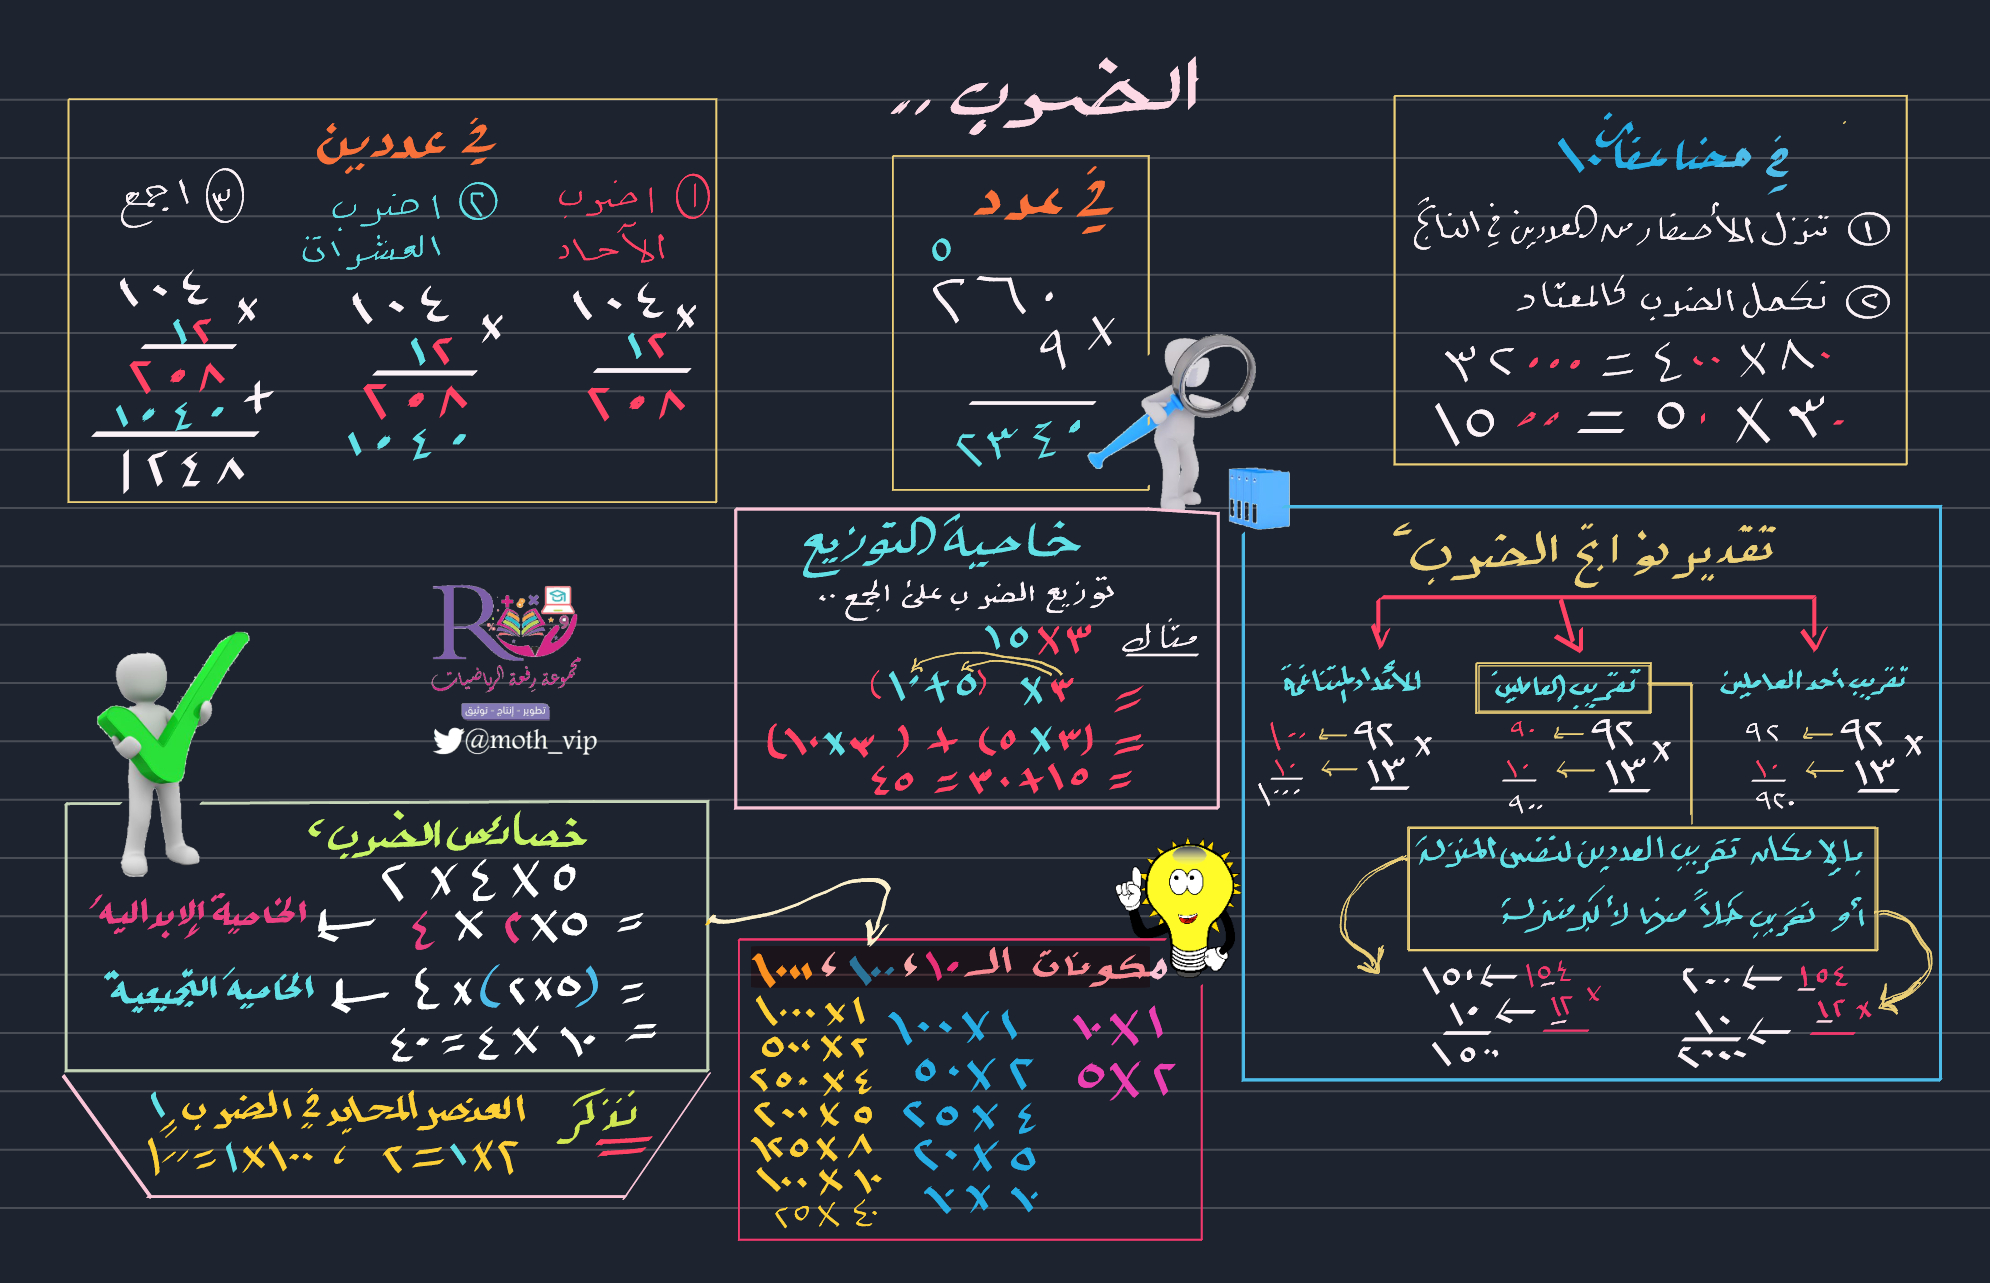 الضرب ,,
في مضاعفات ١٠
① تنزل الأصفار من العددين في الناتج
② نكمل الضرب كالمعتاد
٨٠ × ٤٠٠ = ٣٢٠٠٠
٣٠ × ٥٠ = ١٥٠٠
في عدد
٥
٢٦٠
× ٩
٢٣٤٠
في عددين
① اضرب الآحاد
١٠٤
× ١٢
٢٠٨
② اضرب العشرات
١٠٤
× ١٢
٢٠٨
١٠٤٠
③ اجمع
١٠٤
× ١٢
٢٠٨
+ ١٠٤٠
١٢٤٨
تقدير نواتج الضرب
تقريب أحد العاملين
٩٢ ← ٩٢
× ١٣ ← ١٠
٩٢٠
تقريب العاملين
٩٢ ← ٩٠
× ١٣ ← ١٠
٩٠٠
الأعداد المتناغمة
٩٢ ← ١٠٠
× ١٣ ← ١٠
١٠٠٠
بالإمكان تقريب العددين لنفس المنزلة
أو تقريب كلاً منهما لأكبر منزلة
١٥٤ ← ٢٠٠
× ١٢ ← ١٠
٢٠٠٠
١٥٤ ← ١٥٠
× ١٢ ← ١٠
١٥٠٠
خاصية التوزيع
توزيع الضرب على الجمع ..
مثال ٣ × ١٥
= ٣ × (٥ + ١٠)
= (٣ × ٥) + (٣ × ١٠)
= ١٥ + ٣٠ = ٤٥
R
مجموعة رفعة الرياضيات
تطوير - إنتاج - توثيق
@moth_vip
خصائص الضرب
٥ × ٤ × ٢
= ٥ × ٢ × ٤ ← الخاصية الإبدالية
= (٥ × ٢) × ٤ ← الخاصية التجميعية
= ١٠ × ٤ = ٤٠
تذكر العنصر المحايد في الضرب ١
٢ × ١ = ٢ ، ١٠٠ × ١ = ١٠٠
مكونات الـ ١٠ ، ١٠٠ ، ١٠٠٠
١ × ١٠
٢ × ٥
١ × ١٠٠
٢ × ٥٠
٤ × ٢٥
٥ × ٢٠
١٠ × ١٠
١ × ١٠٠٠
٢ × ٥٠٠
٤ × ٢٥٠
٥ × ٢٠٠
٨ × ١٢٥
١٠ × ١٠٠
٤٠ × ٢٥